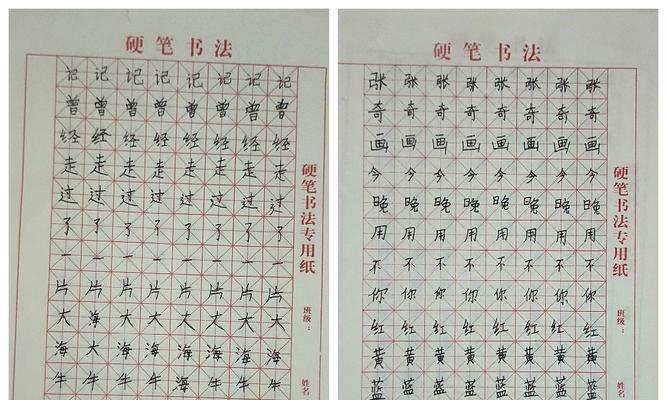 硬笔书法
记记记记记记记记
曾曾曾曾曾曾曾曾
经经经经经经经经
走走走走走走走走
过过过过过过过过
了了了了了了了了
一一一一一一一一
片片片片片片片片
大海大大大大大大
海大海海海海海海
牛牛牛牛海牛牛牛
硬笔书法专用纸
班级：
姓名
硬笔书法
张张张张张张张张
奇奇奇奇奇奇奇奇
画画画画画画画画
今今今今今今今今
晚晚晚晚晚晚晚晚
用用用用用用用用
不不不不不不不不
你你你你你你你你
红红红红红红红红
黄黄黄黄黄黄黄黄
蓝蓝蓝蓝蓝蓝蓝蓝
硬笔书法专用纸
班级：
姓名